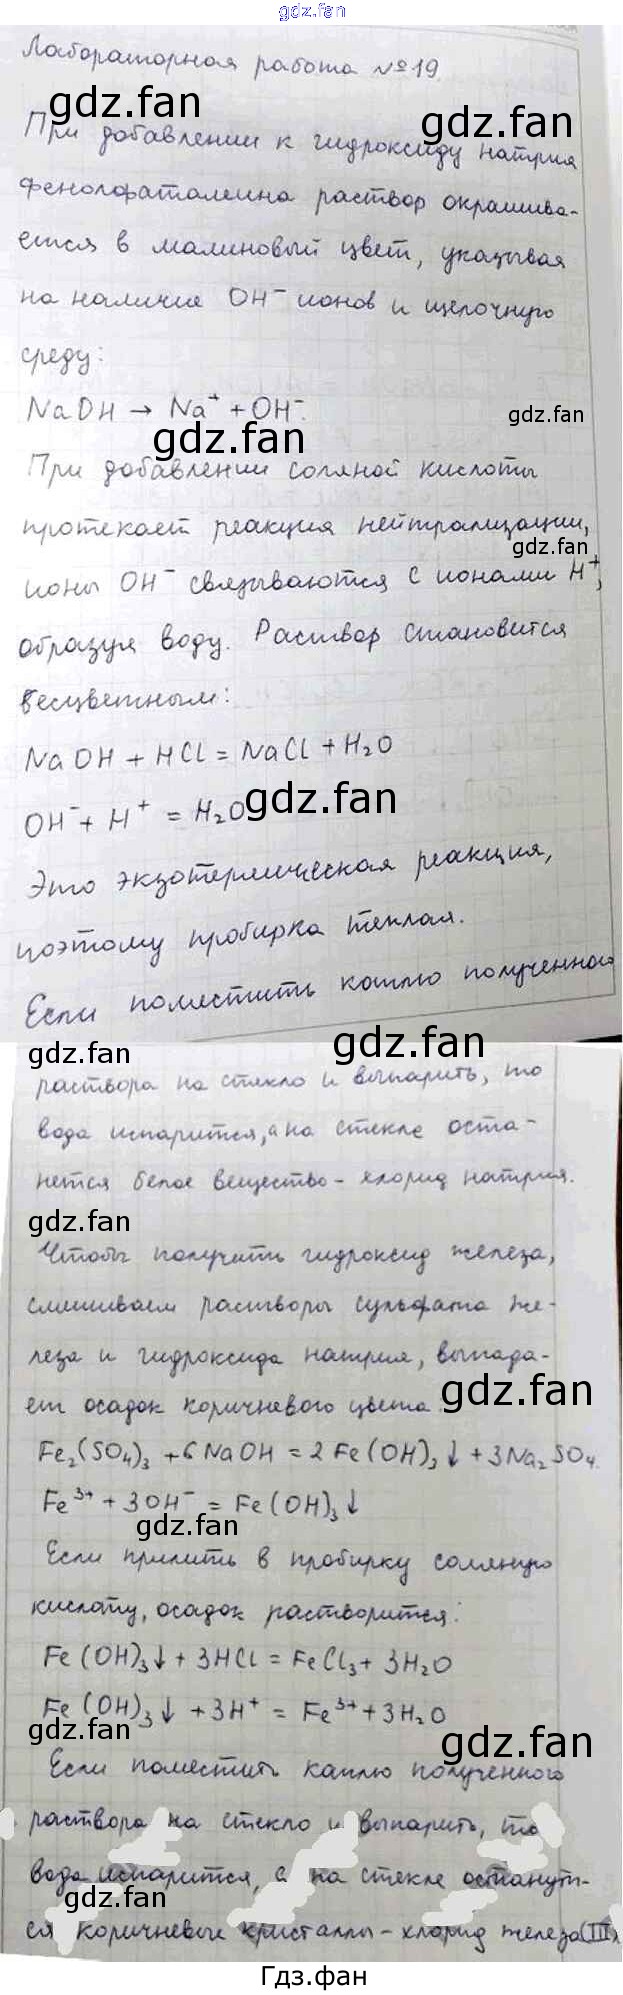 gdz.fan
Лабораторная работа №19
gdz.fan
gdz.fan
При добавлении к гидроксиду натрия
фенолфталеина раствор окрашива-
ется в малиновый цвет, указывая
на наличие OH⁻ ионов и щелочную
среду:
NaOH → Na⁺ + OH⁻.
gdz.fan
gdz.fan
При добавлении соляной кислоты
протекает реакция нейтрализации,
gdz.fan
ионы OH⁻ связываются с ионами H⁺,
образуя воду. Раствор становится
бесцветным:
NaOH + HCl = NaCl + H₂O
gdz.fan
OH⁻ + H⁺ = H₂O
Это экзотермическая реакция,
поэтому пробирка теплая.
Если поместить каплю полученного
gdz.fan
gdz.fan
раствора на стекло и выпарить, то
вода испарится, а на стекле оста-
нется белое вещество - хлорид натрия.
gdz.fan
Чтобы получить гидроксид железа,
смешиваем растворы сульфата же-
леза и гидроксида натрия, выпада-
gdz.fan
ет осадок коричневого цвета:
Fe₂(SO₄)₃ + 6NaOH = 2Fe(OH)₃↓ + 3Na₂SO₄.
Fe³⁺ + 3OH⁻ = Fe(OH)₃↓
gdz.fan
Если прилить в пробирку соляную
кислоту, осадок растворится:
Fe(OH)₃↓ + 3HCl = FeCl₃ + 3H₂O
Fe(OH)₃↓ + 3H⁺ = Fe³⁺ + 3H₂O
gdz.fan
gdz.fan
Если поместить каплю полученного
раствора на стекло и выпарить, то
вода испарится, а на стекле останут-
gdz.fan
gdz.fan
ся коричневые кристаллы - хлорид железа (III)
Гдз.фан